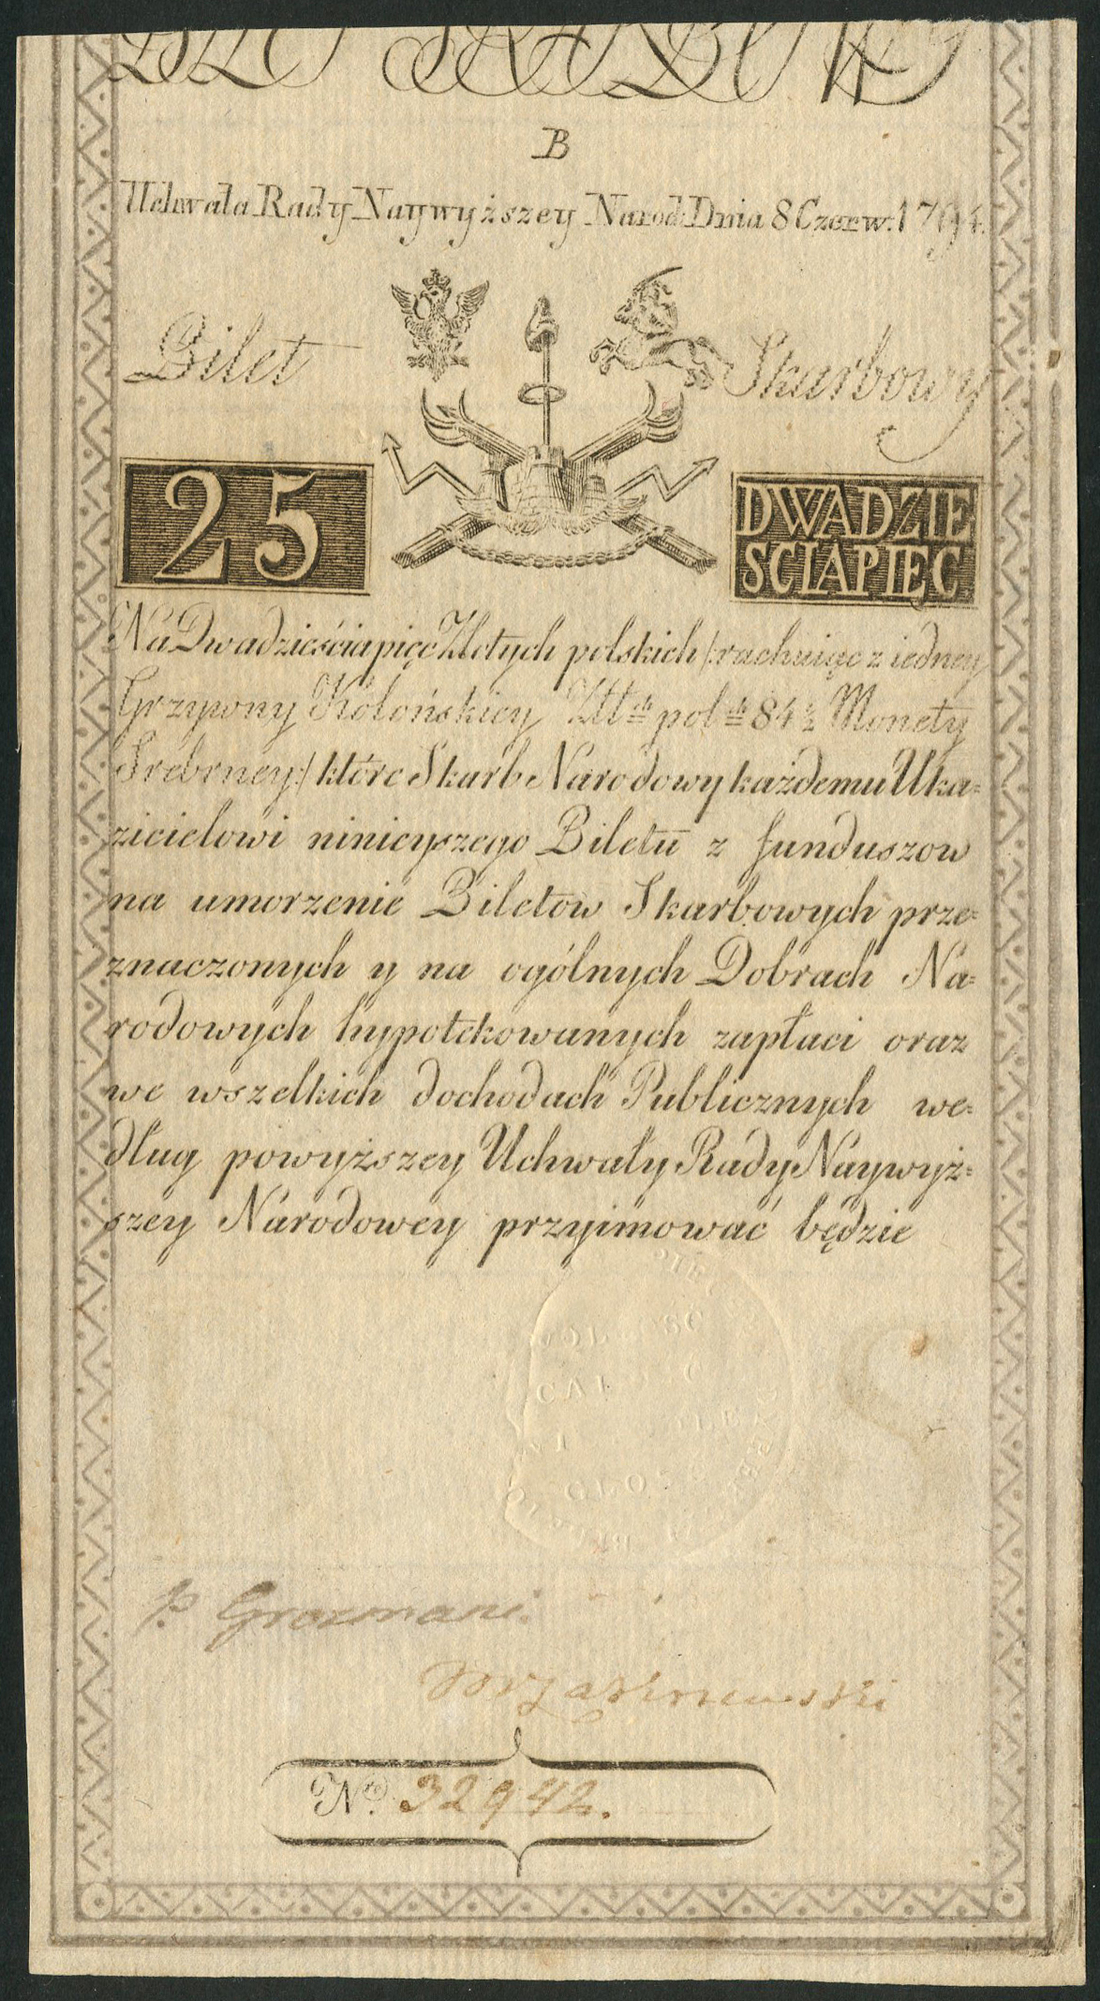 BILET SKARBOWY
B
Uchwała Rady Naywyższey Narod: Dnia 8 Czerw: 1794.
Bilet Skarbowy
25
DWADZIE
SCIAPIĘĆ
Na Dwadzieściapięć Złotych polskich /:rachuiąc z iedney
Grzywny Kolońskiey Złł: pol: 84½ Monety
Srebrney:/ które Skarb Narodowy każdemu Uka=
zicielowi ninieyszego Biletu z funduszow
na umorzenie Biletow Skarbowych prze=
znaczonych y na ogólnych Dobrach Na=
rodowych hypotekowanych zapłaci oraz
we wszelkich dochodach Publicznych we=
dług powyższey Uchwały Rady Naywyż=
szey Narodowey przyimować będzie
WOLNOSC
CAŁOSC
P. Grozmani.
Nro 32942.